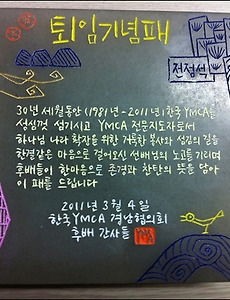 퇴임기념패
전점석
30년 세월동안(1981년-2011년)한국YMCA를
성심껏 섬기시고 YMCA 전문지도자로서
하나님 나라 확장을 위한 거룩한 봉사와 섬김의 길을
한결같은 마음으로 걸어오신 선배님의 노고를 기리며
후배들이 한마음으로 존경과 찬탄의 뜻을 담아
이 패를 드립니다
2011년 3월 4일
한국YMCA 경남협의회
후배 간사들
YMCA